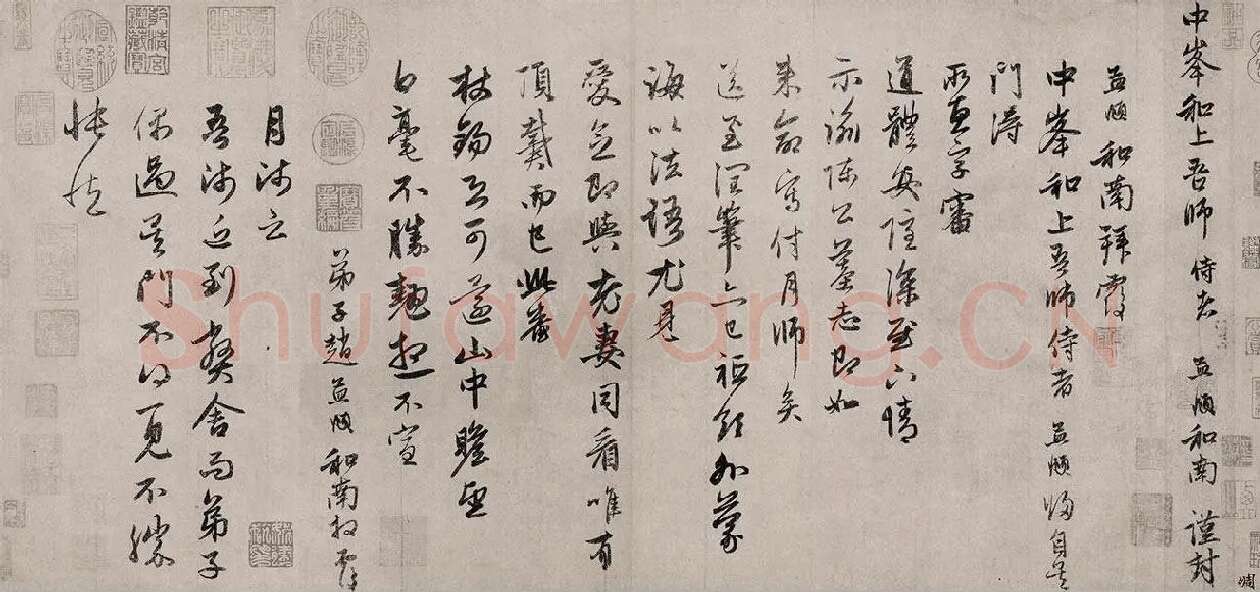 中峯和上吾師 侍者 孟頫和南 謹封
孟頫和南拜覆
中峯和上吾師侍者孟頫歸自吳
門得
所惠字審
道體安隱深慰下情
示諭陳公墓志即如
來命寫付月師矣
送至潤筆亦已祗領外蒙
誨以法語尤見
愛念即與老妻同看唯有
頂戴而已此番
杖錫又可還山中瞻望
白毫不勝馳想不宣
弟子趙孟頫和南拜覆
月師云
吾師近到弊舍而弟子
偶過吳門不得一見不勝
悵怏
Shufawang.CN